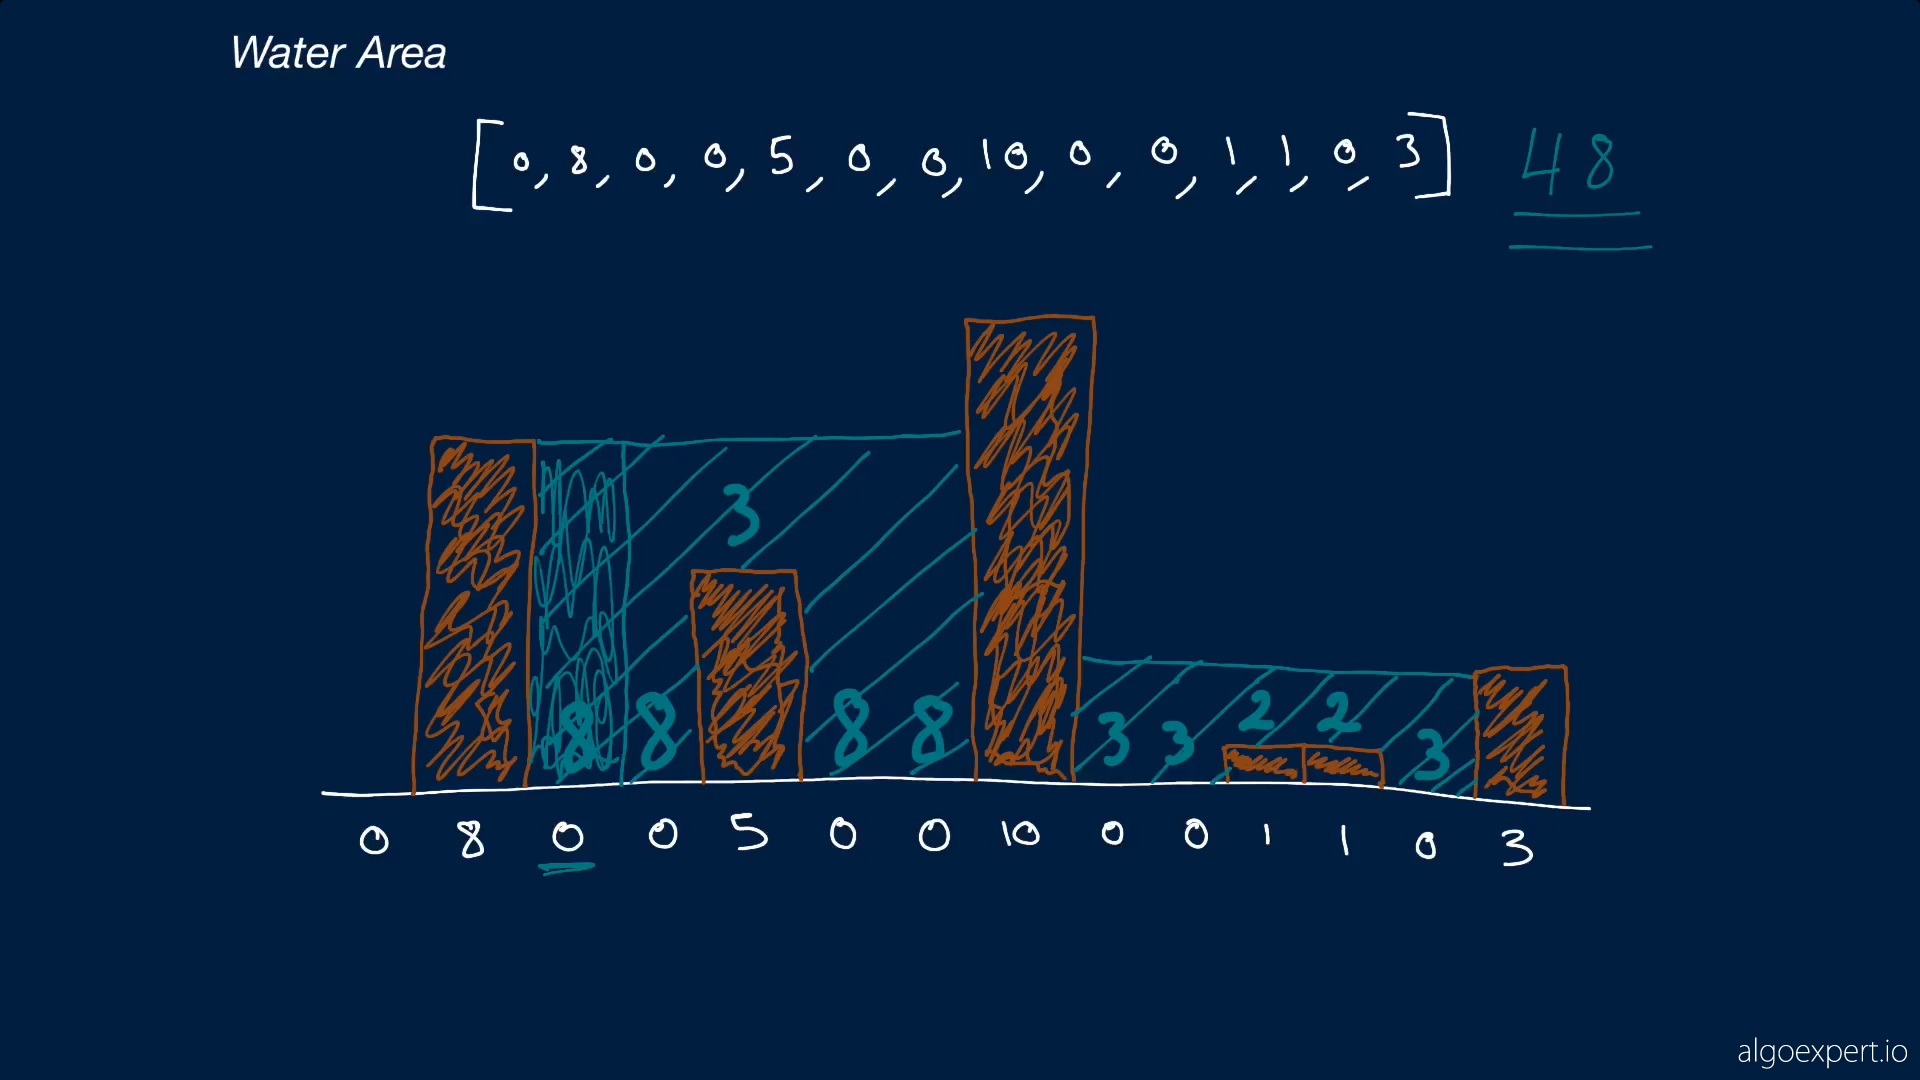 Water Area
[0, 8, 0, 0, 5, 0, 0, 10, 0, 0, 1, 1, 0, 3] 48
3
8 8 8 8 3 3 2 2 3
0 8 0 0 5 0 0 10 0 0 1 1 0 3
algoexpert.io